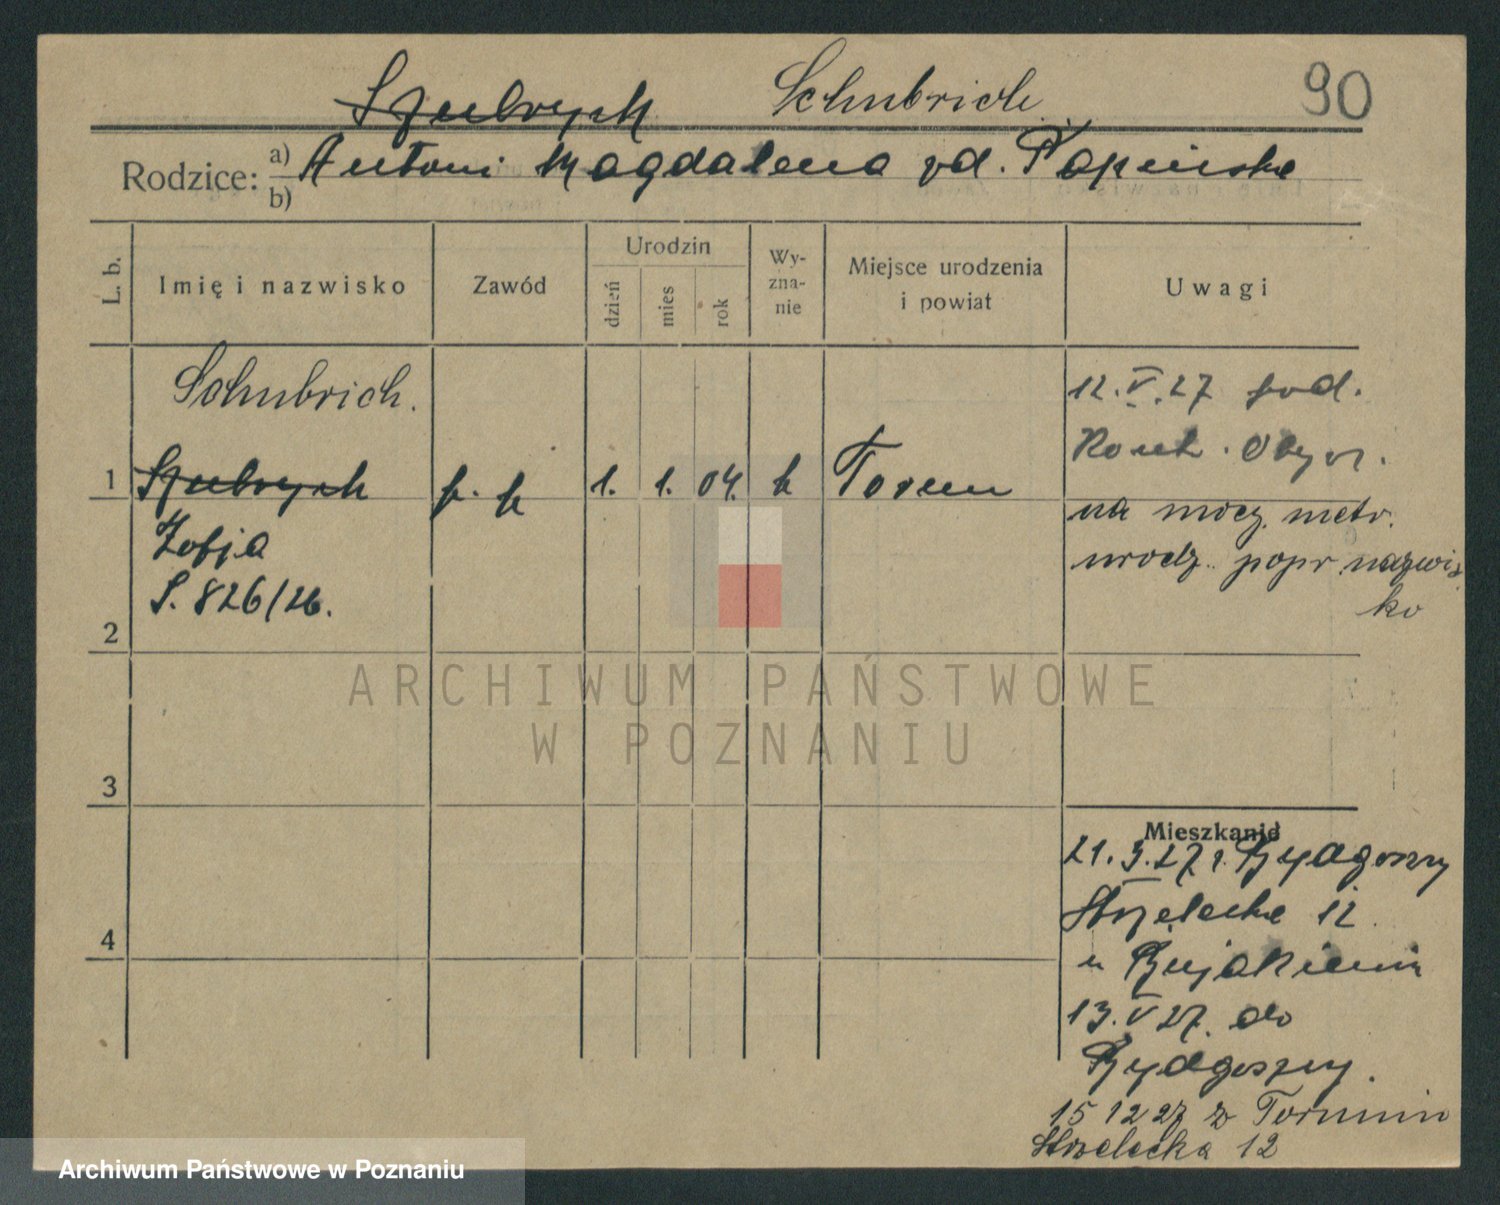 Szubrych Schubrich 90
Rodzice: a) Antoni Magdalena zd.
b)
L. b. Imię i nazwisko Zawód Urodzin dzień mies rok Wyznanie Miejsce urodzenia i powiat Uwagi
Schubrich.
1 Szubrych p. p. 1. 1. 04. k Torun
Zofja
S. 826/26.
12.V.27 pod.
Kont. Obyw.
na mocy metr.
urodz. popr. nazwis
ko
2
3
4
Mieszkanie
21.3.27 z Bydgoszczy
Strzelecka 12
u
13.V 27. do
Bydgoszczy.
15 12 27 z Torunia
Strzelecka 12
ARCHIWUM PAŃSTWOWE
W POZNANIU
Archiwum Państwowe w Poznaniu